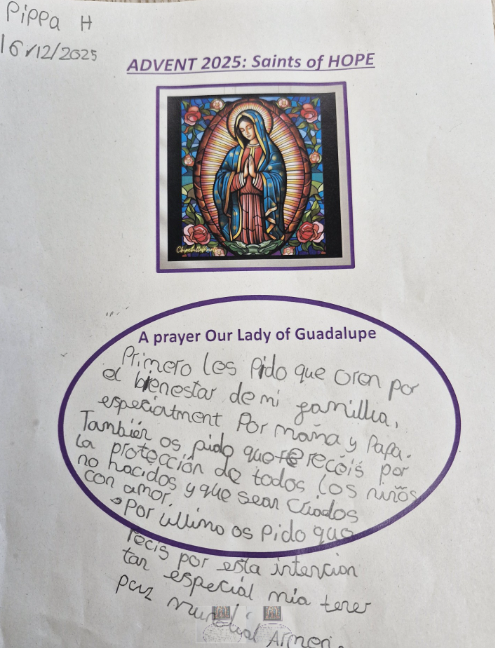 Pippa H
16/12/2025
ADVENT 2025: Saints of HOPE
A prayer Our Lady of Guadalupe
Primero les Pido que oren por
el bienestar de mi familia,
especiatment Por maña y Papa.
También os pido que receis por
la protección de todos los niños
no nacidos y que sean criados
con amor.
Por ultimo os Pido que
recis por esta intencion
tan especial mia tener
paz mundial Amen.